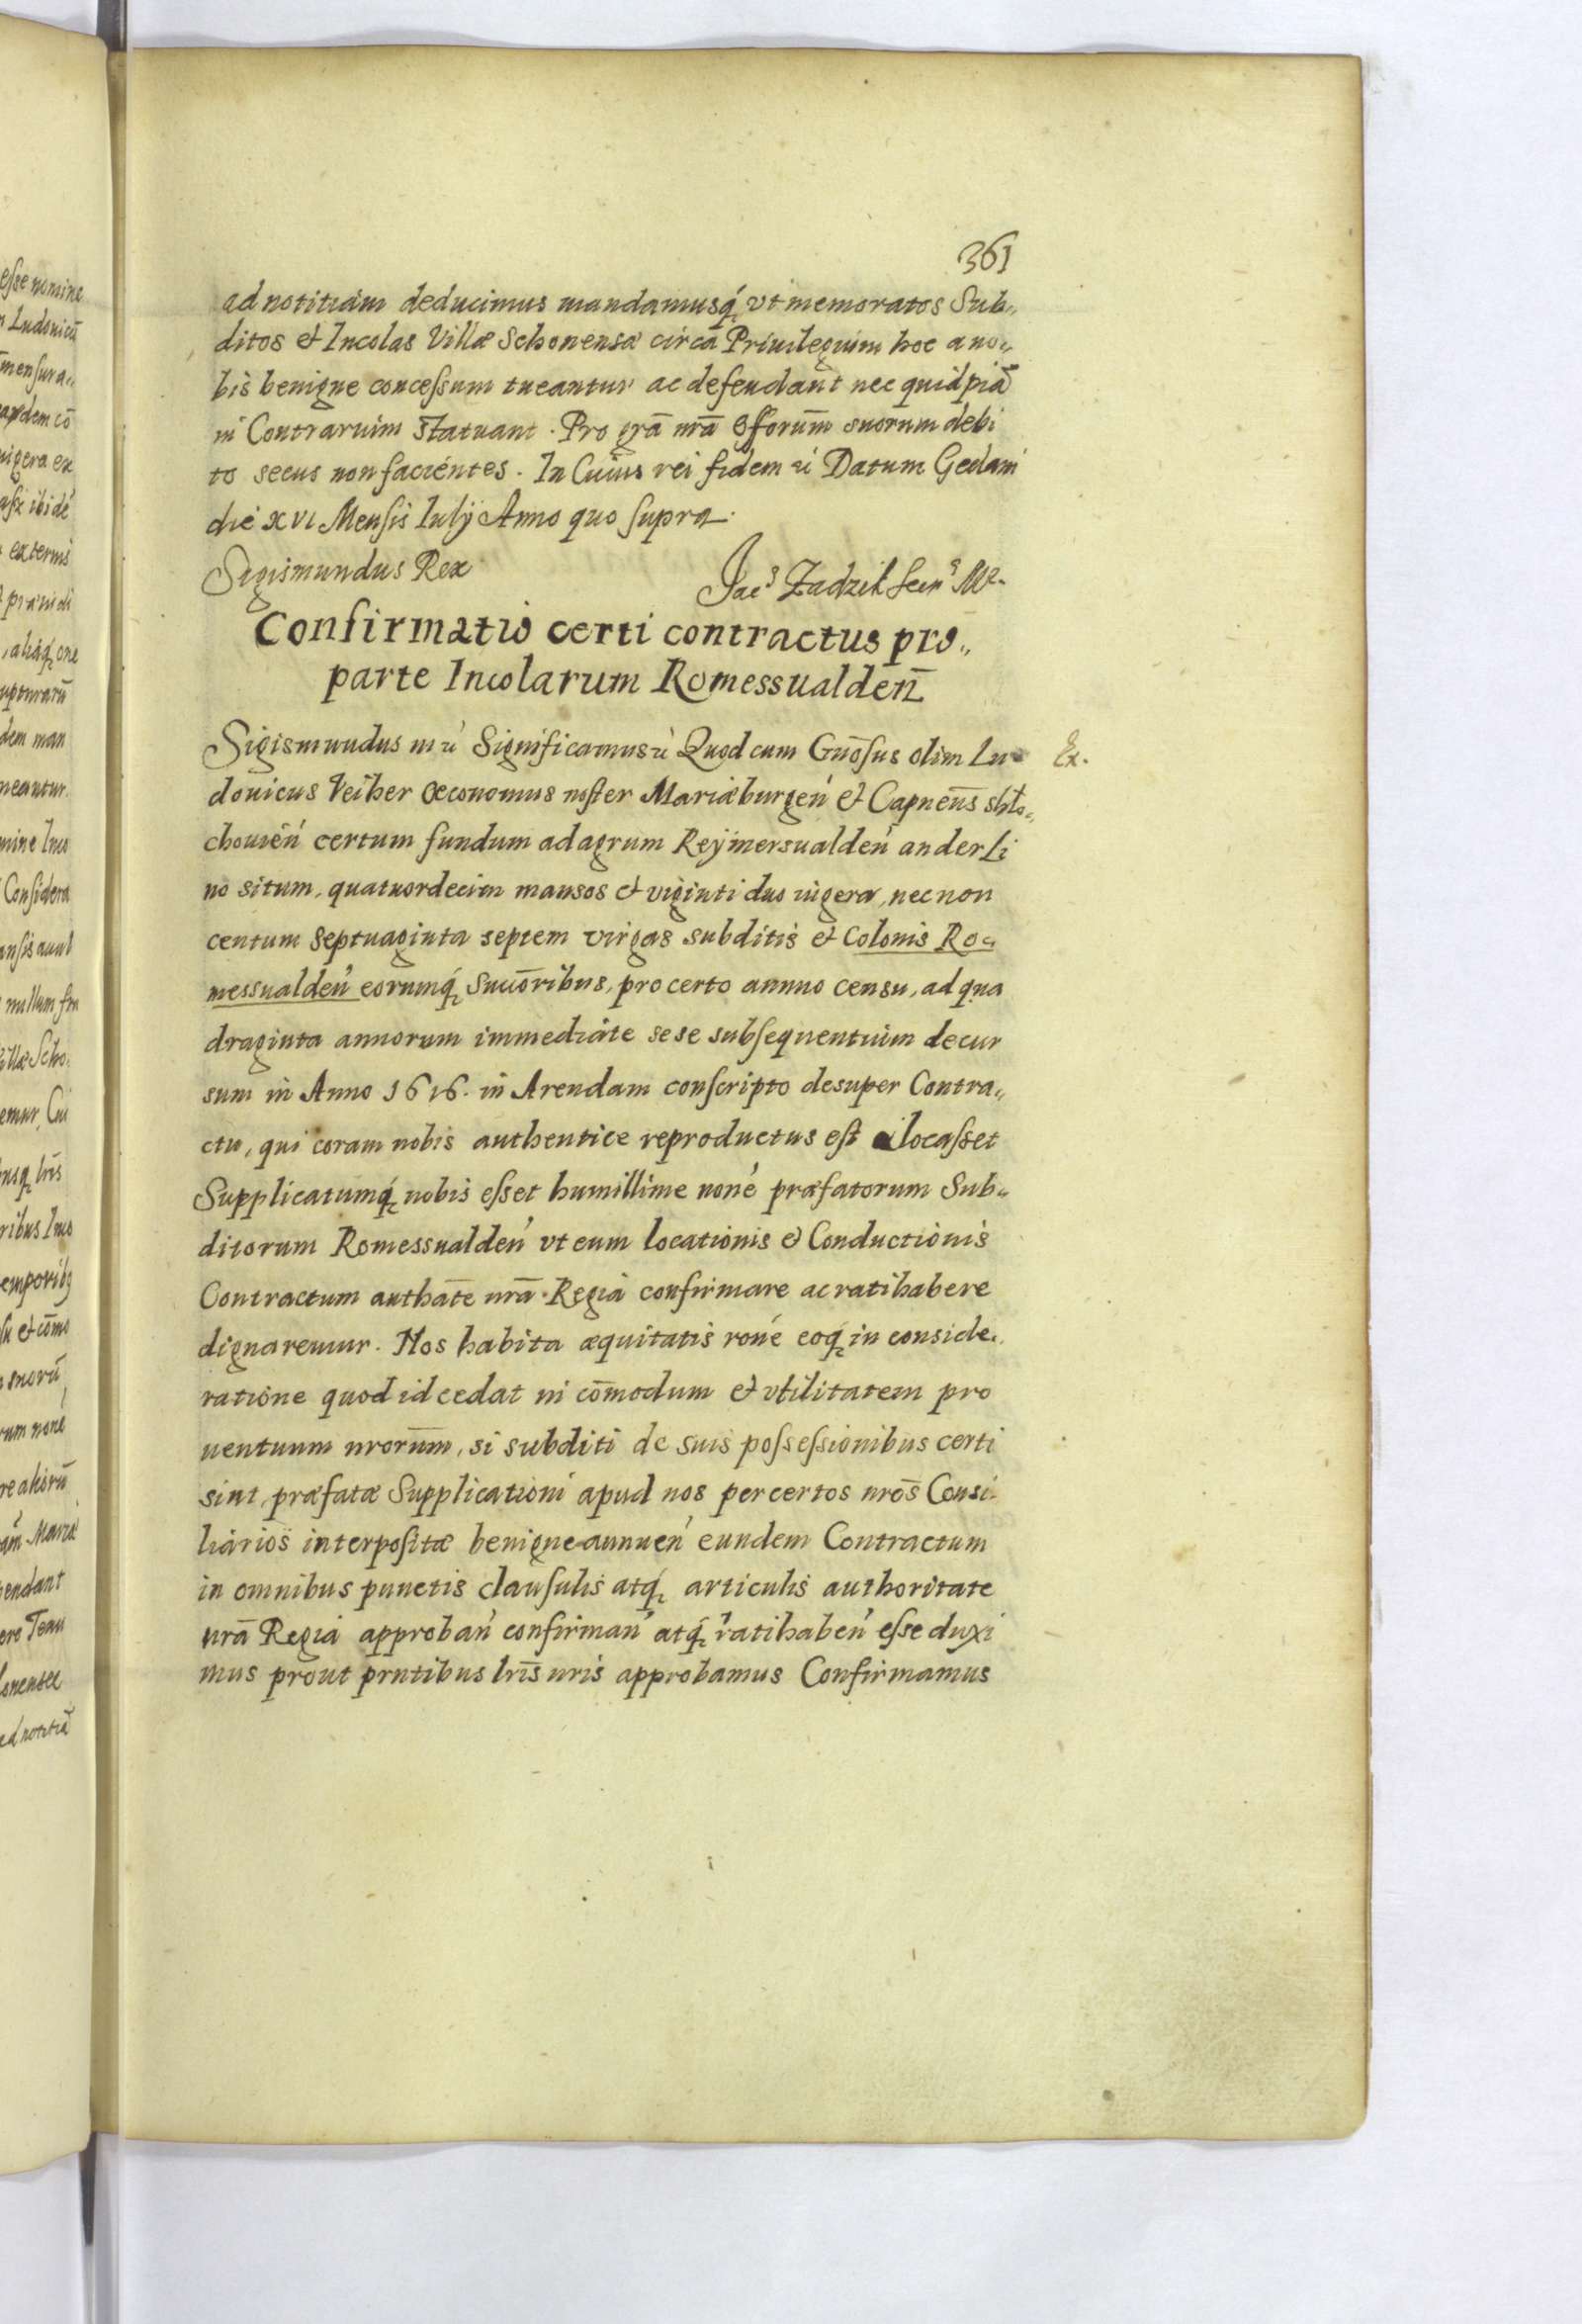 361
ad notitiam deducimus mandamusq́ꝫ vt memoratos Sub„
ditos et Incolas Villæ Schonensæ circa Priuilegium hoc a no„
bis benigne conceſsum tueantur ac defendant nec quidpiā
in Contrarium statuant. Pro grā nrā Offorum̄ suorum debi
to secus non facientes. In Cuius rei fidem Datum Gedani
die xvi Menſis Iulÿ Anno quo ſupra.
Sigismundus Rex
Jacˢ Zadzik
Confirmatio certi contractus pro„
parte Incolarum Romessualden̄
Sigismundus Significamus Quod cum Gnōſus olim Lu
Ex.
douicus Veiher œconomus noſter Mariæburgeń et Capneūs
chouień certum fundum ad agrum Reÿmersualdeń an der Li
no situm, quatuordecim mansos et viginti duo iugera, nec non
centum septuaginta septem virgas subditis et Colonis Ro„
messualdeń eorumq́ꝫ Succōribus, pro certo annuo censu, ad qua
draginta annorum immediate sese subſequentium decur
sum in Anno 1616. in Arendam conſcripto desuper Contra„
ctu, qui coram nobis authentice reproductus eſt locaſset
Supplicatumq́ꝫ nobis eſset humillime noné præfatorum Sub„
ditorum Romessualdeń vt eum locationis et Conductionis
Contractum authāte nrā Regia confirmare ac ratihabere
dignaremur. Nos habita æquitatis roné eoq́ꝫ in conside„
ratione quod id cedat in cōmodum et vtilitatem pro
uentuum nrorum̄, si subditi de suis poſseſsionibus certi
sint, præfatæ Supplicationi apud nos per certos nrōs Consi„
liarios interpoſitæ benigne annueń eundem Contractum
in omnibus punctis clauſulis atq́ꝫ articulis authoritate
nrā Regia approbań confirmań atq́ꝫ ratihabeń eſse duxi
mus prout prntibus lrīs nris approbamus Confirmamus